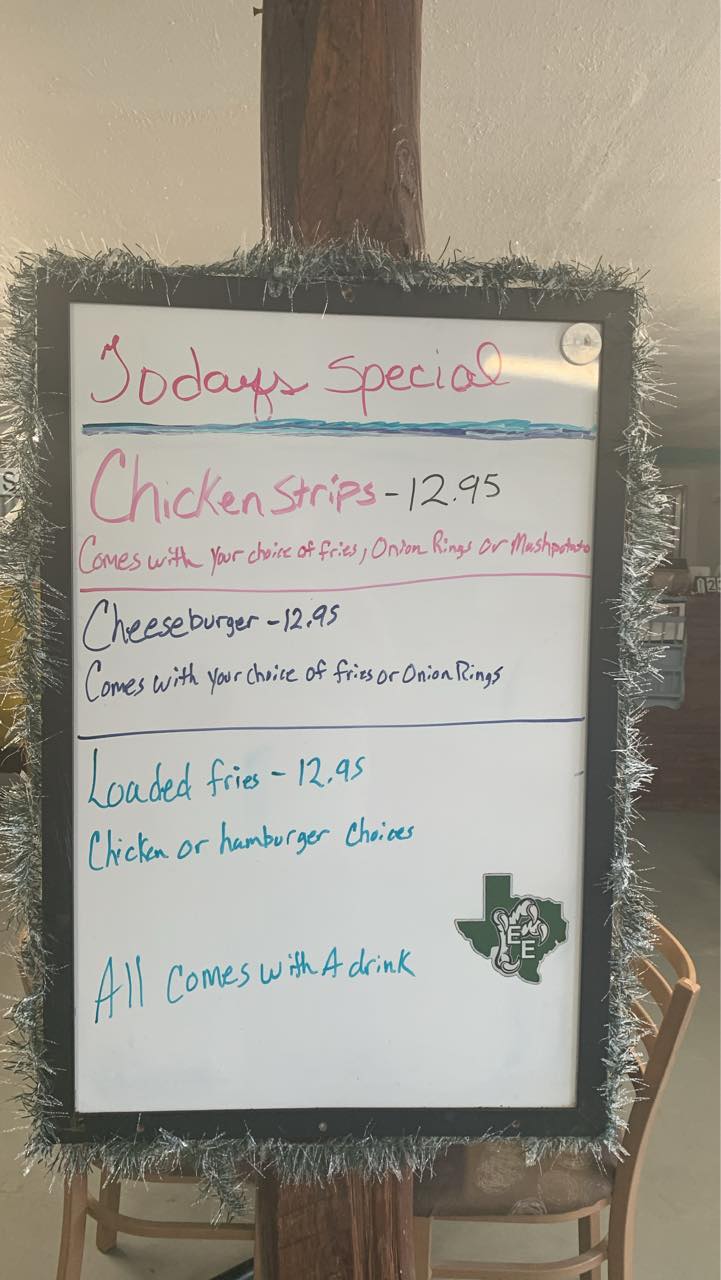 Todays Special
Chicken Strips - 12.95
Comes with your choice of fries, Onion Rings or Mashpotato
Cheeseburger - 12.95
Comes with your choice of fries or Onion Rings
Loaded fries - 12.95
Chicken or hamburger choices
E
E
All comes with A drink